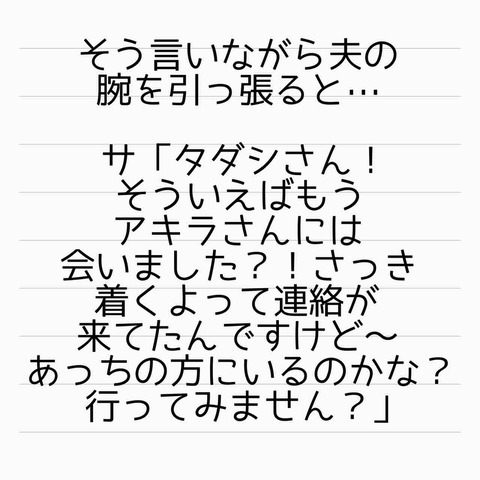 そう言いながら夫の
腕を引っ張ると…
サ「タダシさん！
そういえばもう
アキラさんには
会いました？！さっき
着くよって連絡が
来てたんですけど〜
あっちの方にいるのかな？
行ってみません？」